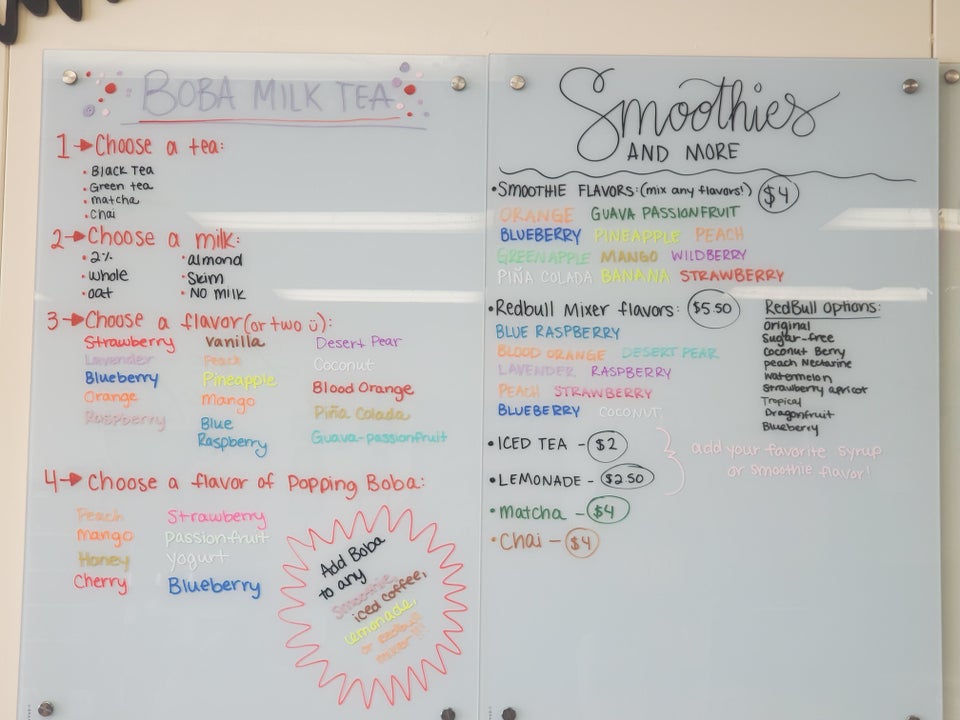 BOBA MILK TEA
1→Choose a tea:
• Black Tea
• Green tea
• matcha
• Chai
2→Choose a milk:
• 2% • almond
• whole • Skim
• oat • NO milk
3→Choose a flavor (or two ü):
Strawberry vanilla Desert Pear
Lavender Peach Coconut
Blueberry Pineapple Blood Orange
Orange Mango Piña Colada
Raspberry Blue Raspberry Guava-passionfruit
4→Choose a flavor of Popping Boba:
Peach Strawberry
mango passionfruit
Honey yogurt
Cherry Blueberry
Add Boba
to any
Smoothie,
iced coffee,
lemonade,
or redbull
mixer!!!
Smoothies
AND MORE
• SMOOTHIE FLAVORS: (mix any flavors!) $4
ORANGE GUAVA PASSIONFRUIT
BLUEBERRY PINEAPPLE PEACH
GREENAPPLE MANGO WILDBERRY
PIÑA COLADA BANANA STRAWBERRY
• Redbull Mixer flavors: $5.50
BLUE RASPBERRY
BLOOD ORANGE DESERT PEAR
LAVENDER RASPBERRY
PEACH STRAWBERRY
BLUEBERRY COCONUT
RedBull Options:
Original
Sugar-free
Coconut Berry
peach Nectarine
watermelon
Strawberry apricot
Tropical
Dragonfruit
Blueberry
• ICED TEA - $2
• LEMONADE - $2.50
add your favorite syrup
or smoothie flavor!
• matcha - $4
• Chai - $4